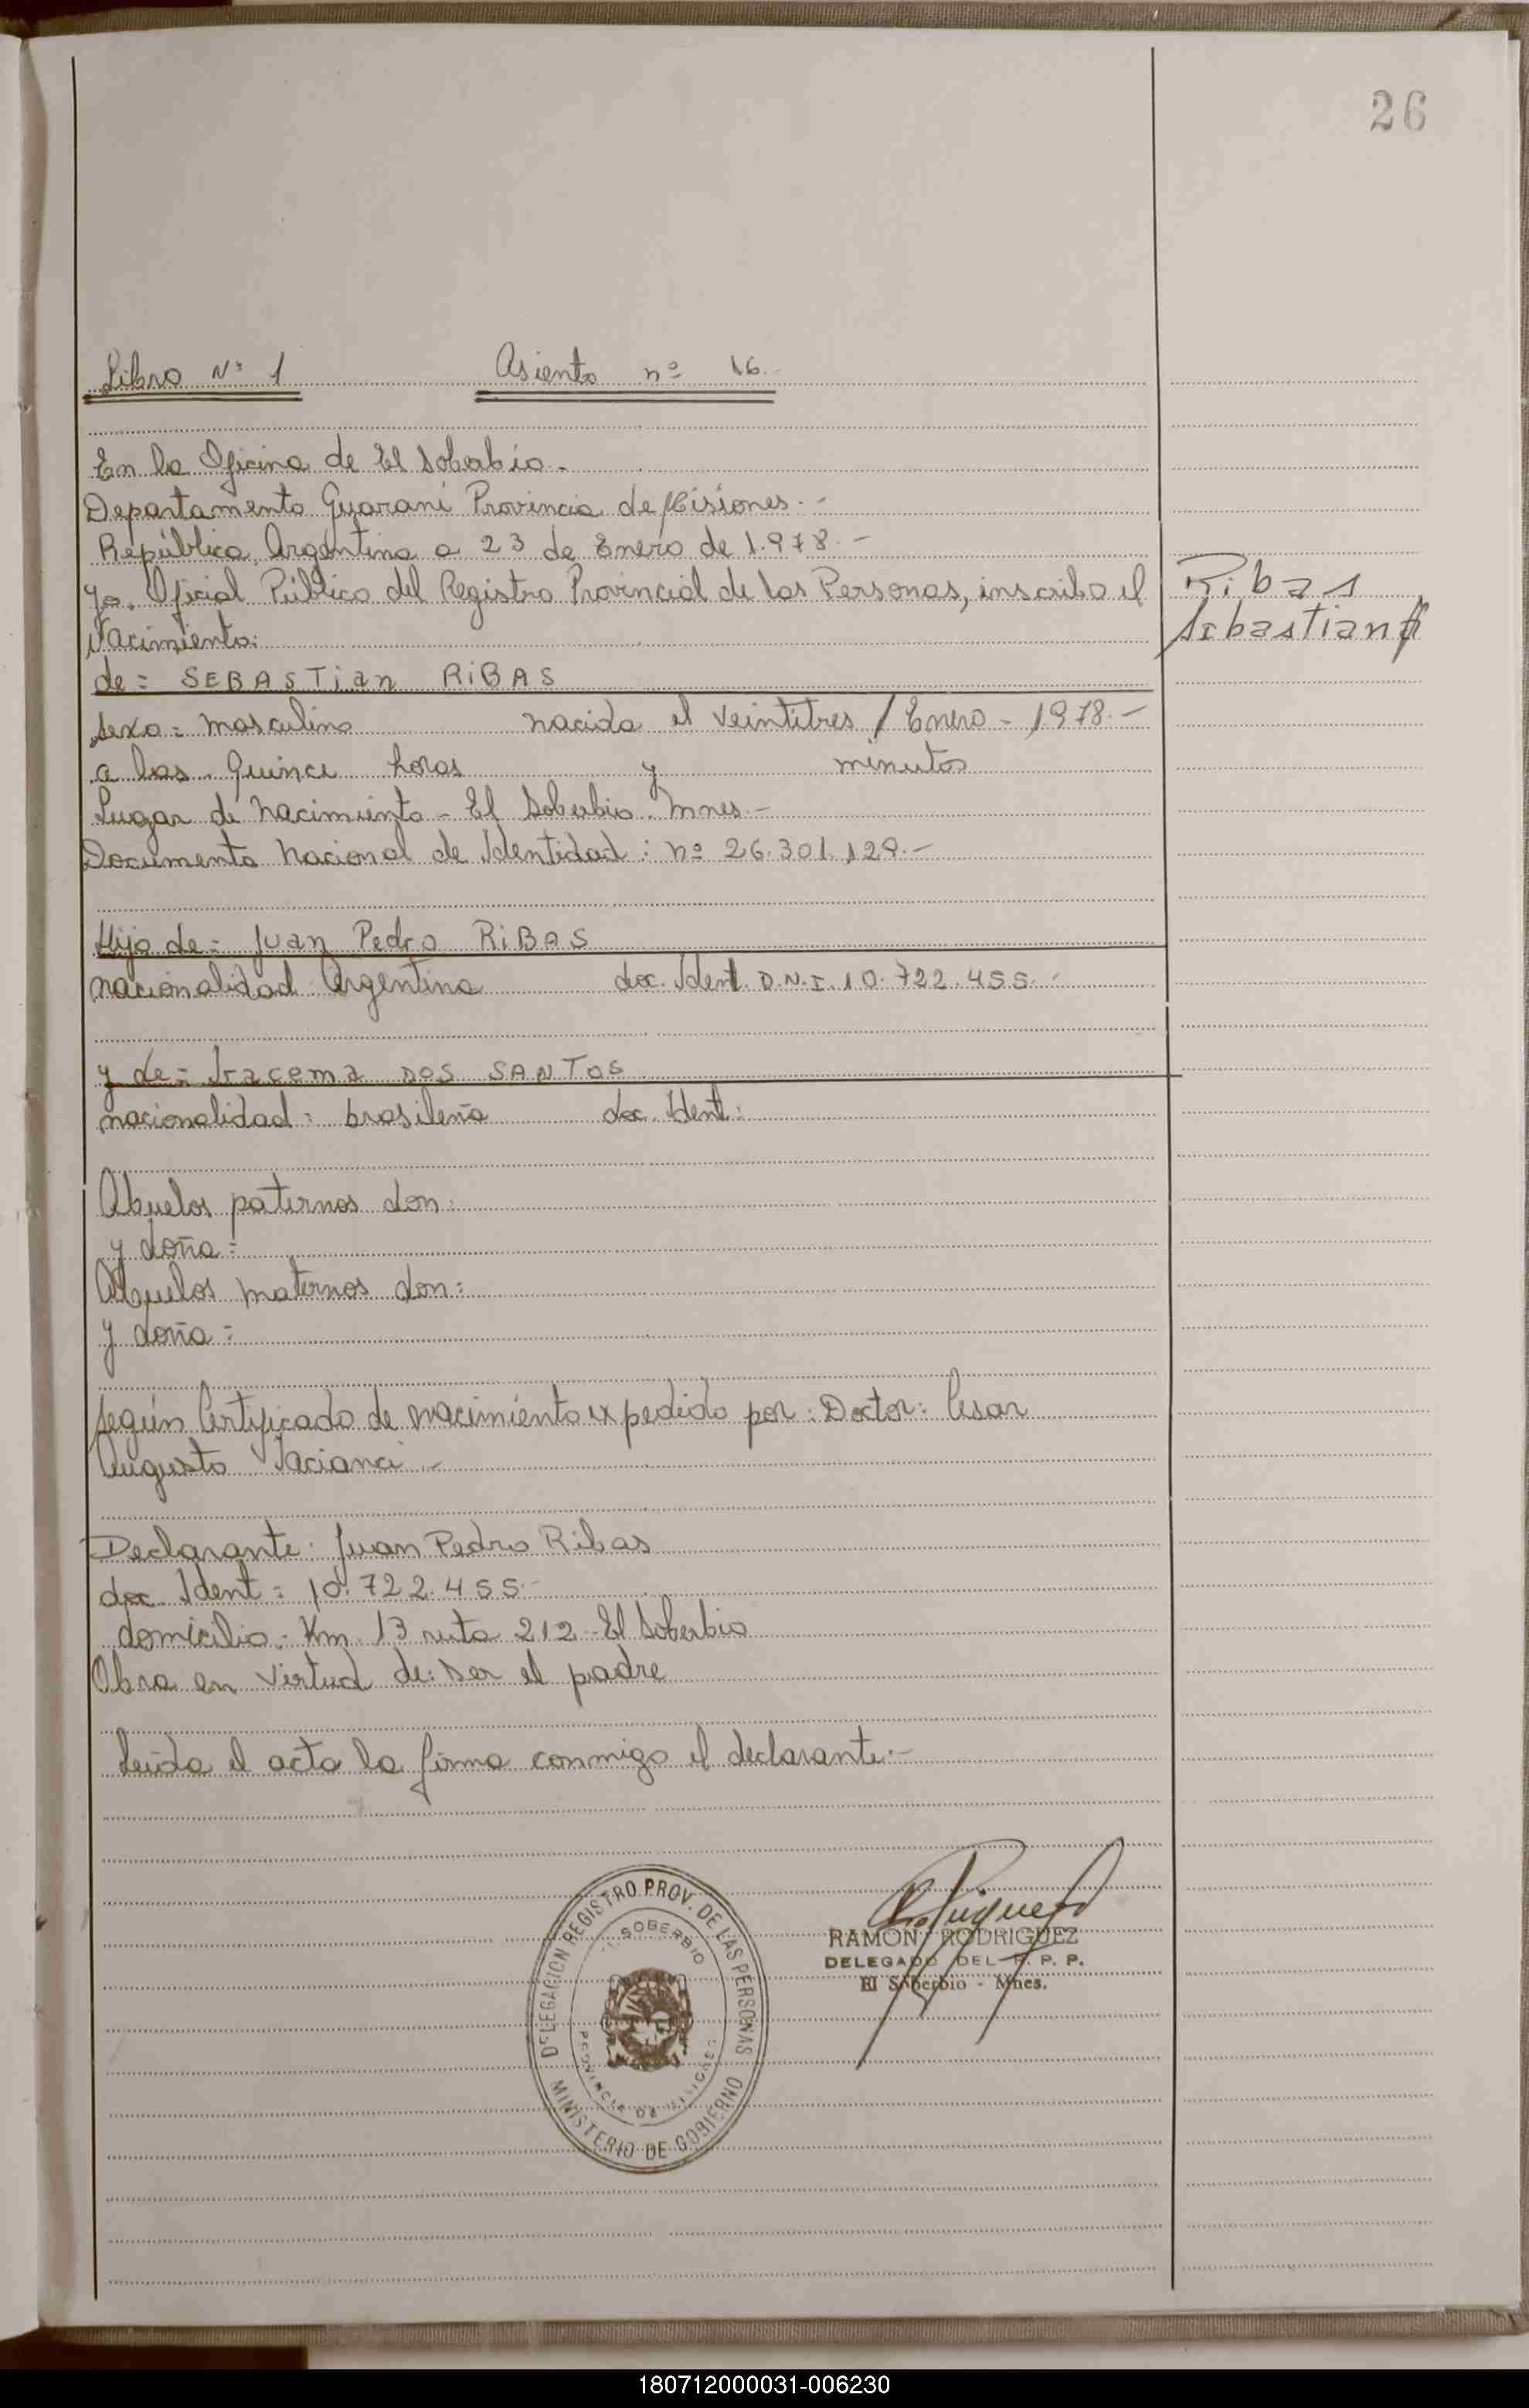 26
Libro Nº 1 Asiento nº 16.-
En la Oficina de El Soberbio.-
Departamento Guaraní Provincia de Misiones.-
República Argentina a 23 de Enero de 1.978.-
Yo. Oficial Público del Registro Provincial de las Personas, inscribo el
Nacimiento:
Ribas
Sebastian
de= SEBASTian RiBAS
Sexo= masculino nacido el veintitres / Enero - 1978.-
a las. Quince horas y minutos
Lugar de nacimiento - El Soberbio. Mnes.-
Documento nacional de Identidad: nº 26.301.129.-
Hijo de= Juan Pedro RiBAS
nacionalidad Argentina doc. Ident. D.N.I. 10.722.455.-
y de= Iracema DOS SANTOS
nacionalidad: brasileña doc. Ident:
Abuelos paternos don:
y doña=
Abuelos maternos don:
y doña=
Según Certificado de nacimiento expedido por: Doctor: Cesar
Augusto -
Declarante: Juan Pedro Ribas
doc. Ident= 10.722.455.-
domicilio.- Km. 13 ruta 212 - El Soberbio
Obra en virtud de: Ser el padre
Leída el acta la firma conmigo el declarante.-
DELEGACION REGISTRO PROV. DE LAS PERSONAS
SOBERBIO
PROVINCIA DE MISIONES
MINISTERIO DE GOBIERNO
RAMON RODRIGUEZ
DELEGADO DEL R. P. P.
El Soberbio - Mnes.
180712000031-006230